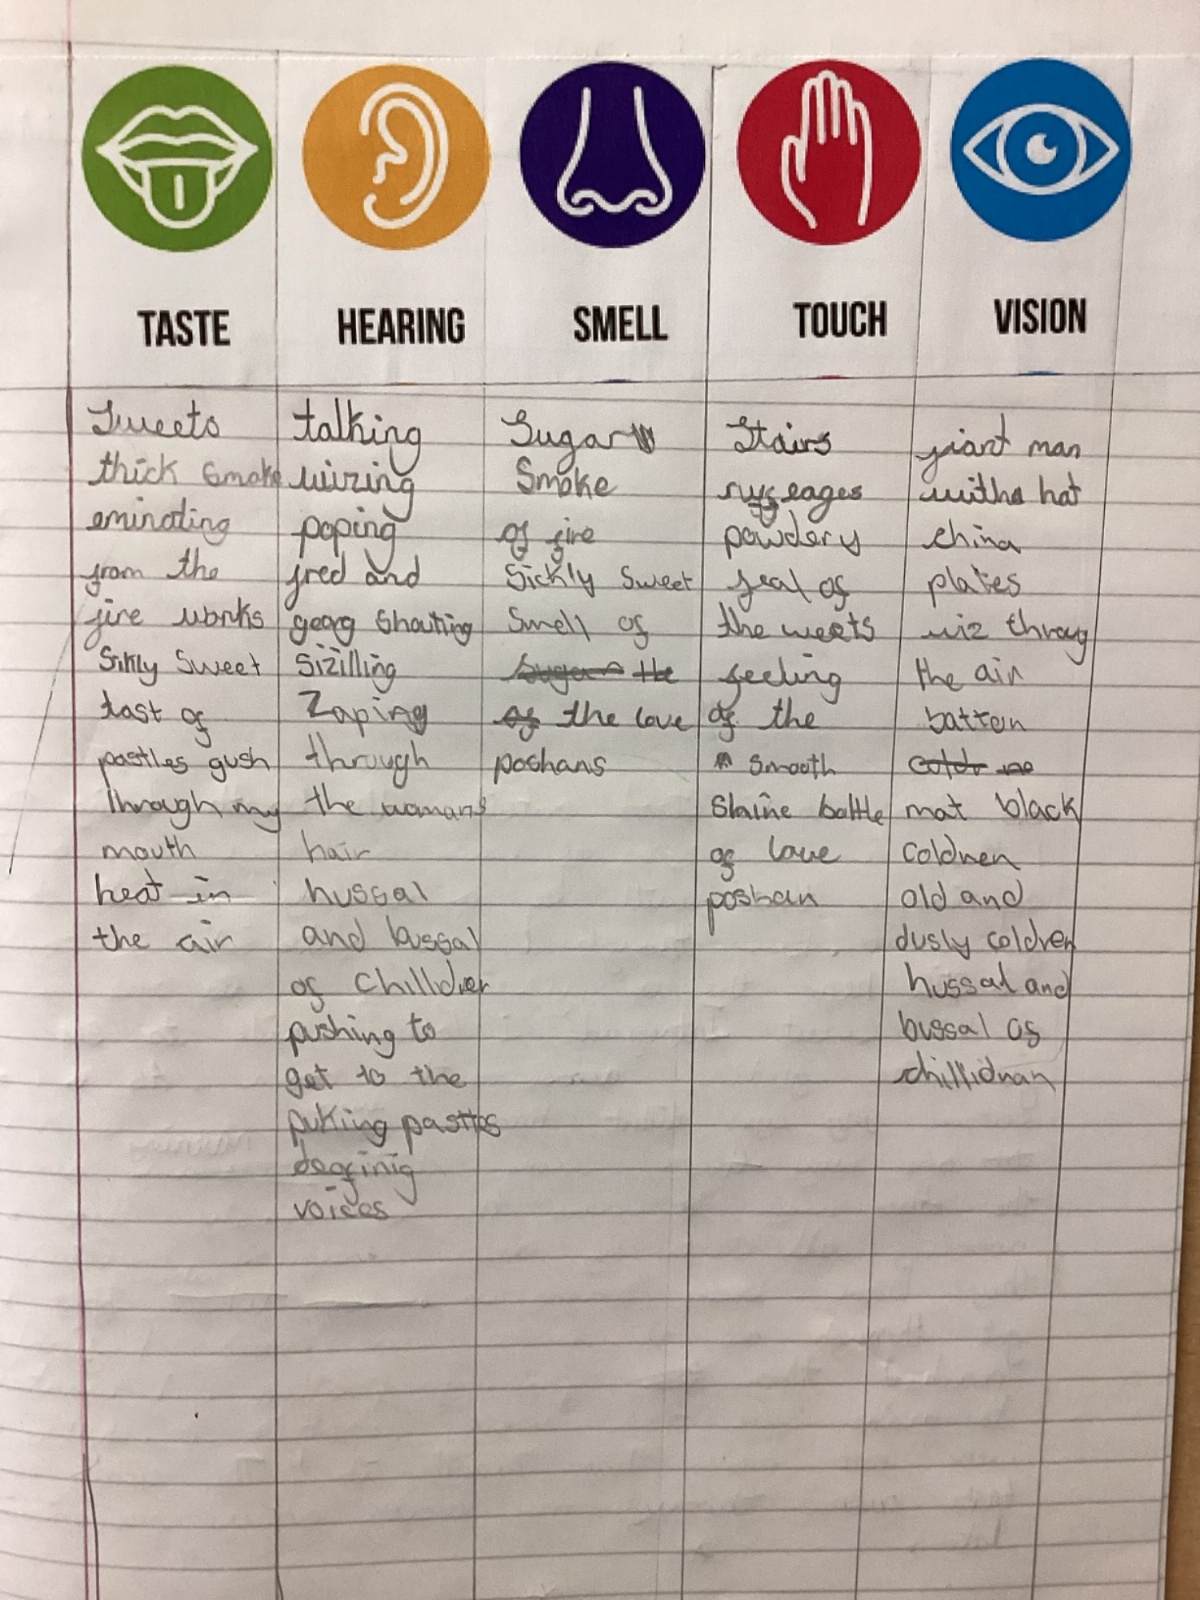 TASTE
HEARING
SMELL
TOUCH
VISION
Sweets
thick Smoke
eminating
from the
fire works
Sikly Sweet
tast of
pastles gush
through my
mouth
heat in
the air
talking
wizing
poping
fred and
geog Shouting
Sizilling
Zaping
through
the womans
hair
hussal
and bussal
of Chilldren
pushing to
get to the
puking pastles
deafinig
voices
Sugar
Smoke
of fire
Sickly Sweet
Smell of
Sugar the
of the love
poshans
Stairs
powdery
feal of
the weets
feeling
of the
Smooth
Slaine bottle
of love
poshan
giant man
witha hat
china
plates
wiz throug
the air
batton
mat black
Coldren
old and
dusly coldren
hussal and
bussal of
chillidran